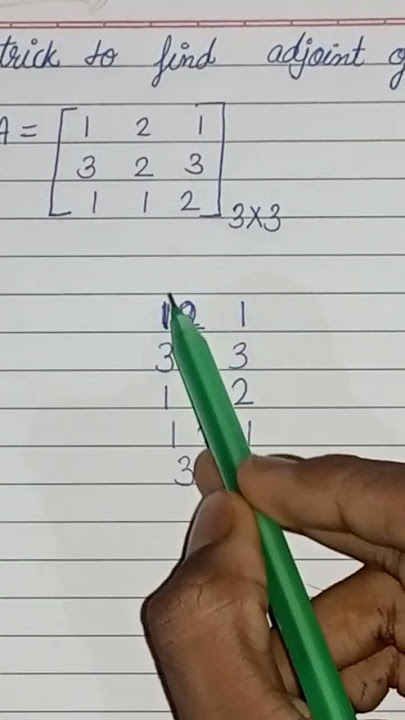 trick to find adjoint of
A = [ 1 2 1
3 2 3
1 1 2 ] 3×3
1 2 1
3 3
1 2
1 1
3